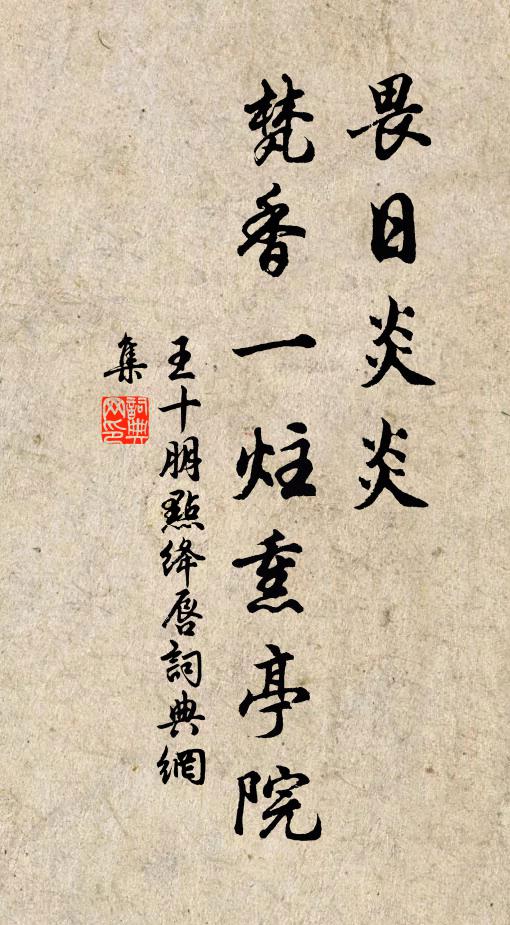 畏日炎炎
梵香一炷熏亭院
王十朋點絳唇詞典網
集
詞典网印